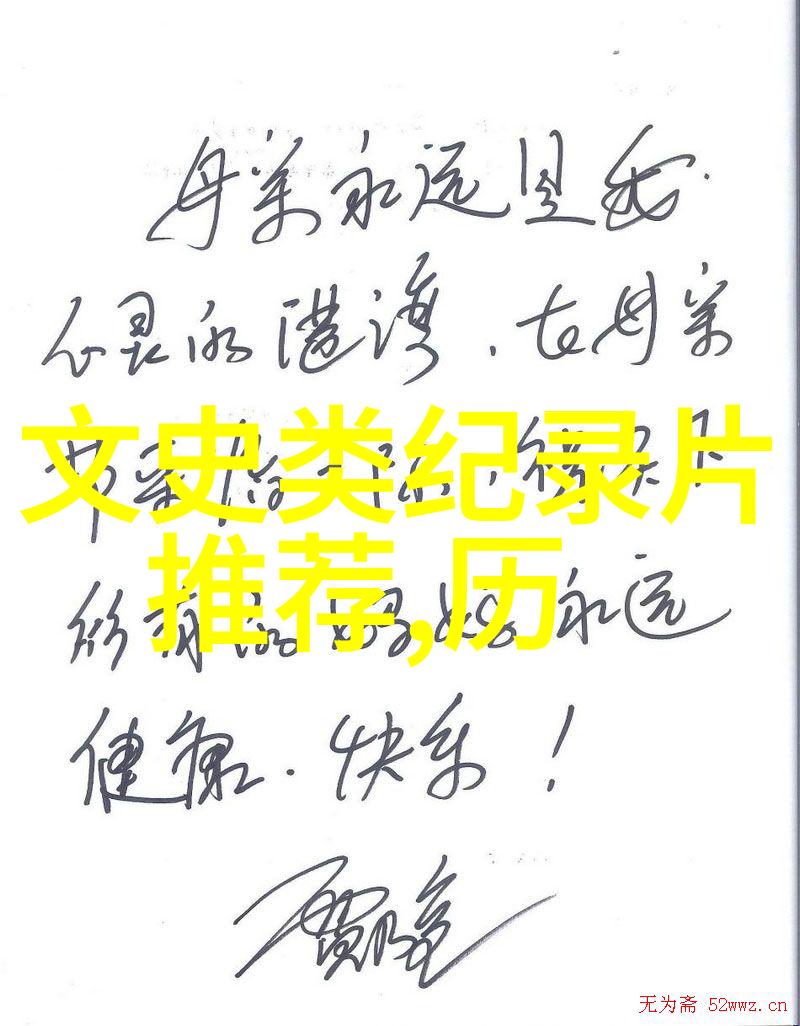 母亲永远是我
心灵的港湾，在母亲
文史类纪录片
推荐,历
所有的妈妈永远
健康、快乐！
无为斋 52wwz.cn